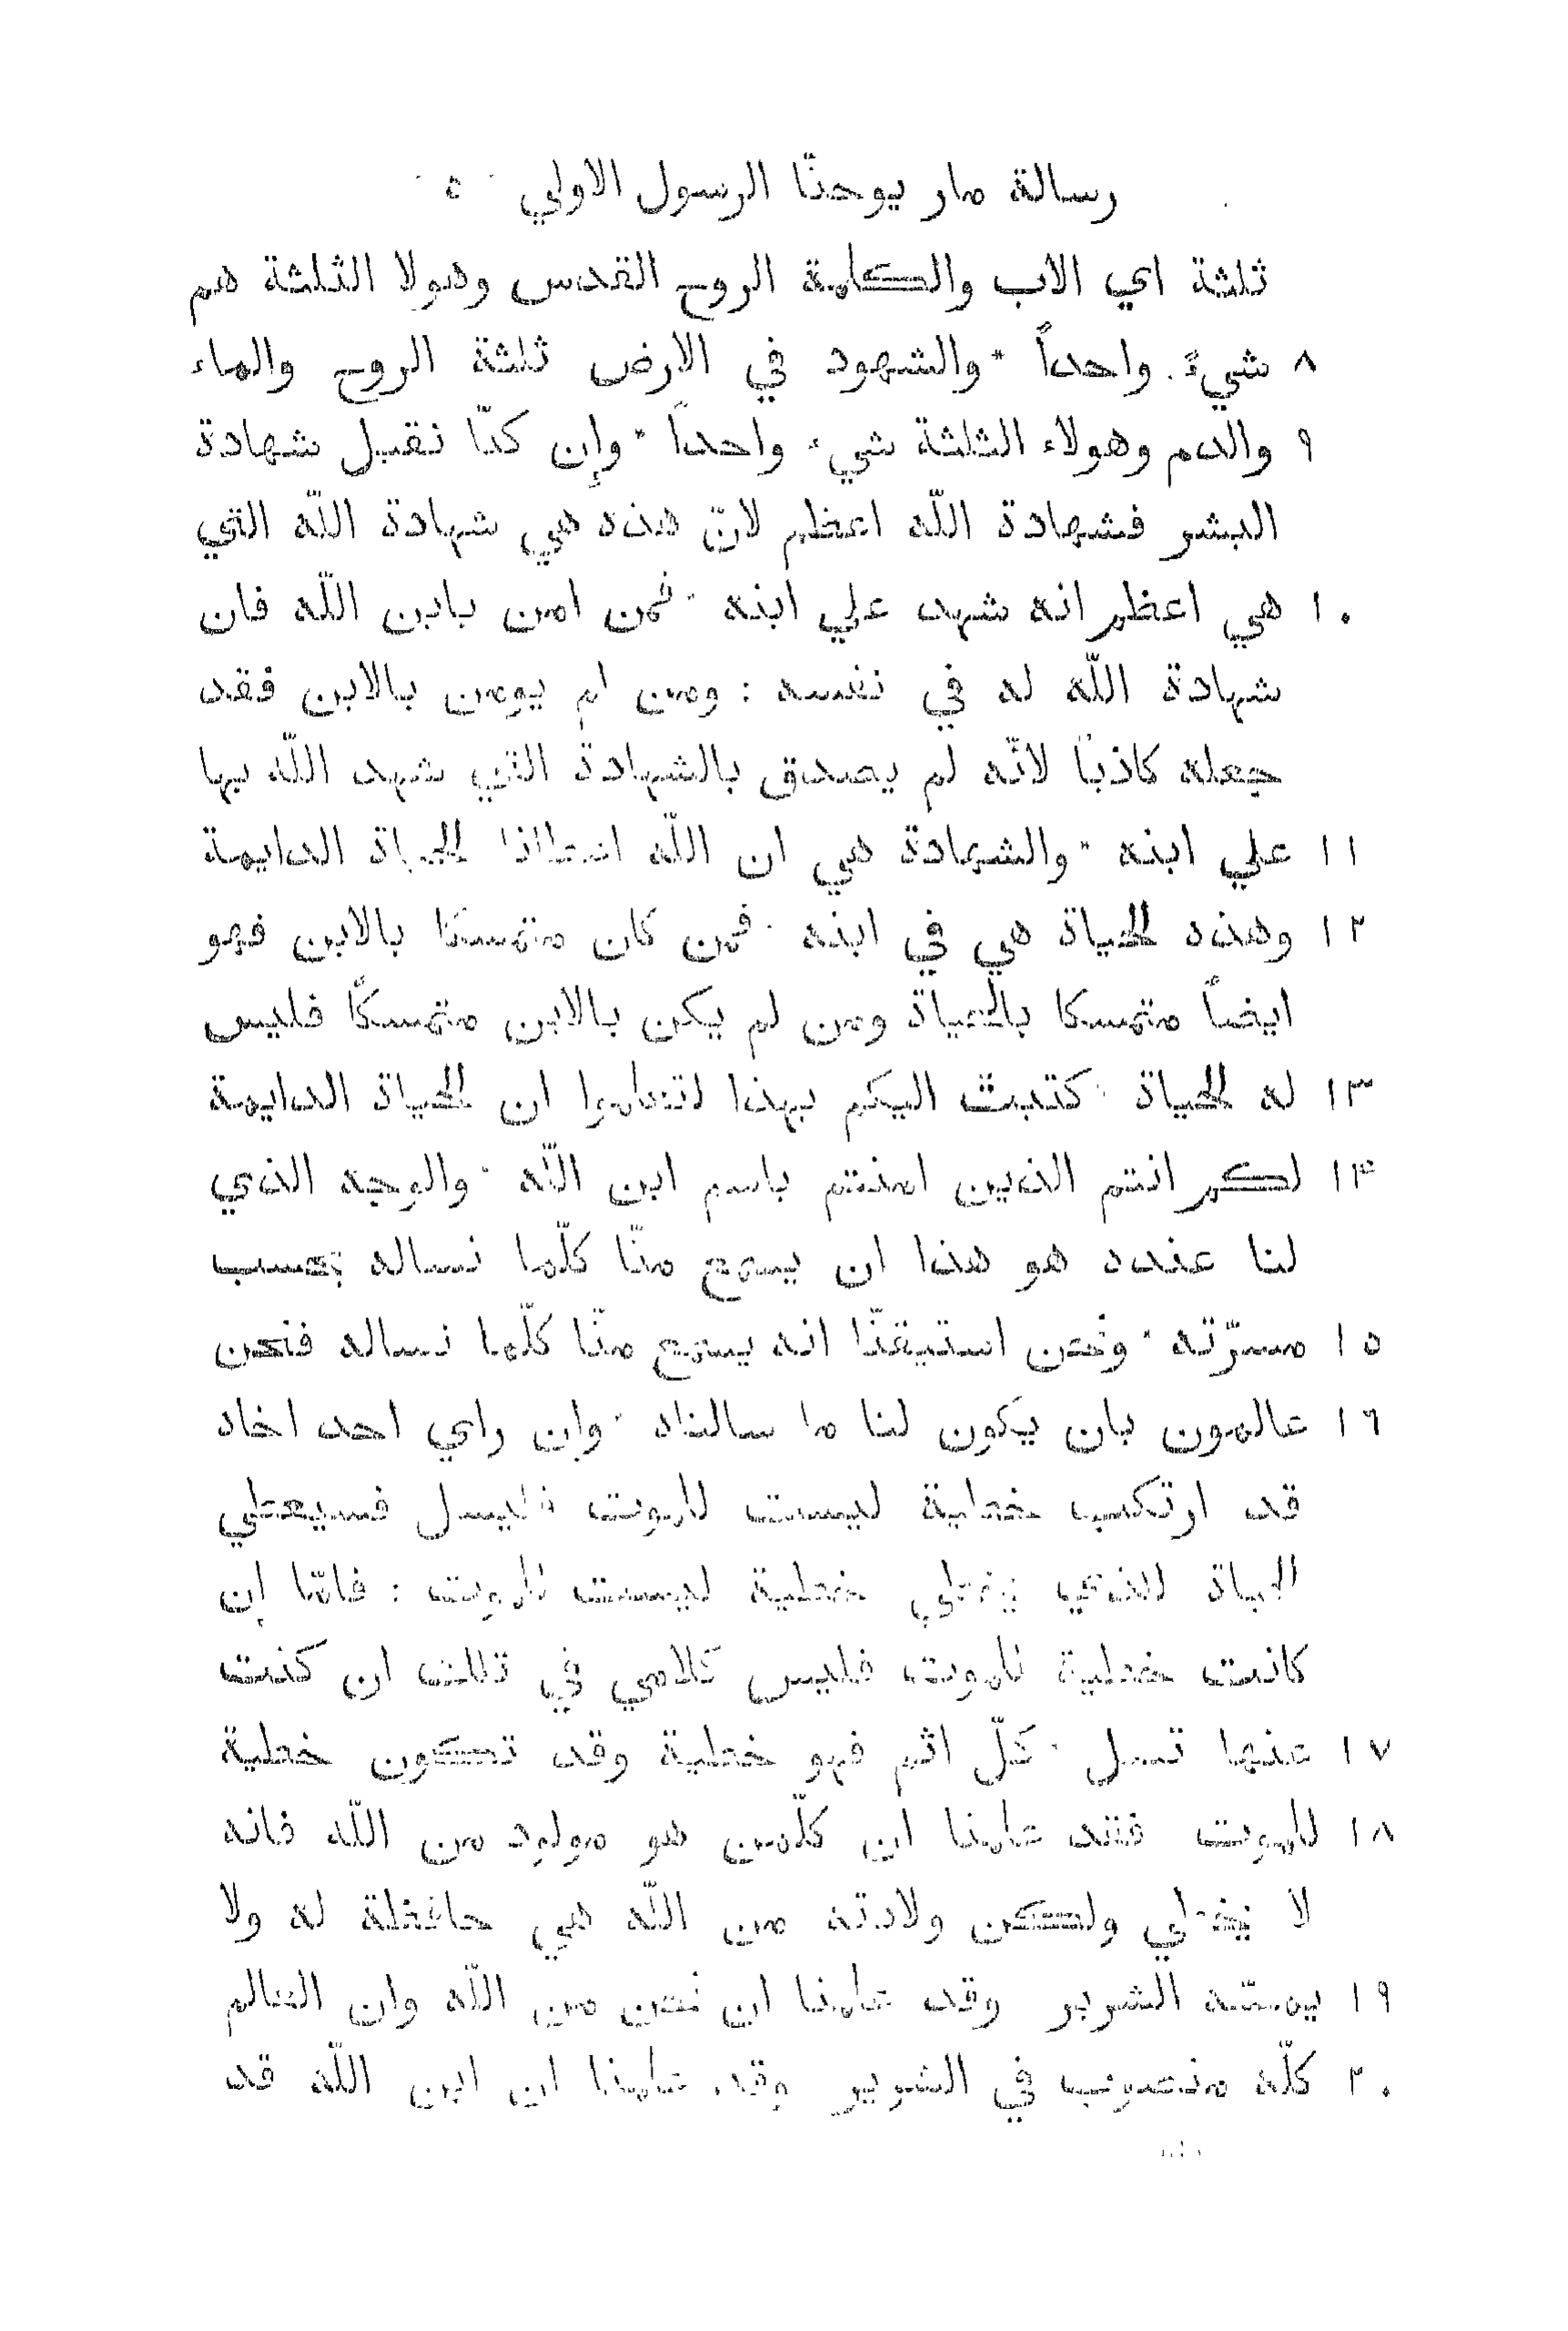 رسالة مار يوحنّا الرسول الاولي ٥
ثلثة اي الاب والكلمة الروح القدس وهولا الثلثة هم
٨ شيءً واحداً * والشهود في الارض ثلثة الروح والماء
٩ والدم وهولاء الثلثة شيء واحداً * وإن كنّا نقبل شهادة
البشر فشهادة اللّه اعظم لانّ هذه هي شهادة اللّه التي
١٠ هي اعظم انه شهد علي ابنه * فمن امن بابن اللّه فان
شهادة اللّه له في نفسه : ومن لم يومن بالابن فقد
جعله كاذباً لانّه لم يصدق بالشهادة التي شهد اللّه بها
١١ علي ابنه * والشهادة هي ان اللّه اعطانا الحياة الدايمة
١٢ وهذه الحياة هي في ابنه * فمن كان متمسكا بالابن فهو
ايضاً متمسكا بالحياة ومن لم يكن بالابن متمسكًا فليس
١٣ له الحياة * كتبت اليكم بهذا لتعلموا ان الحياة الدايمة
١٤ لكم انتم الذين امنتم باسم ابن اللّه * والوجه الذي
لنا عنده هو هذا ان يسمع منّا كلّما نساله بحسب
١٥ مسرّته * ونحن استيقنّا انه يسمع منّا كلّما نساله فنحن
١٦ عالمون بان يكون لنا ما سالناه * وان راي احد اخاه
قد ارتكب خطية ليست للموت فليسل فسيعطي
الحياة للذي يخطي خطية ليست للموت : فامّا إن
كانت خطية للموت فليس كلامي في تلك ان كنت
١٧ عنها تسل * كلّ اثم فهو خطية وقد تكون خطية
١٨ للموت فقد علمنا ان كلّمن هو مولود من اللّه فانه
لا يخطي ولكن ولادته من اللّه هي حافظة له ولا
١٩ يمسّه الشرير وقد علمنا ان نحن من اللّه وان العالم
٢٠ كلّه منصوب في الشرير وقد علمنا ان ابن اللّه قد